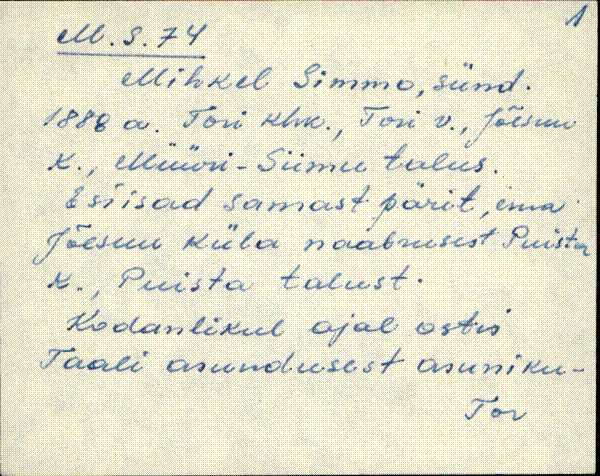 1
M. S. 74
Mihkel Simmo, sünd.
1888 a. Tori khk., Tori v., Jõesuu
k., Müüri-Siimu talus.
Esiisad samast pärit, ema
Jõesuu küla naabrusest Puista
k., Puista talust.
Kodanlikul ajal ostis
Taali asundusest asuniku-
Tor